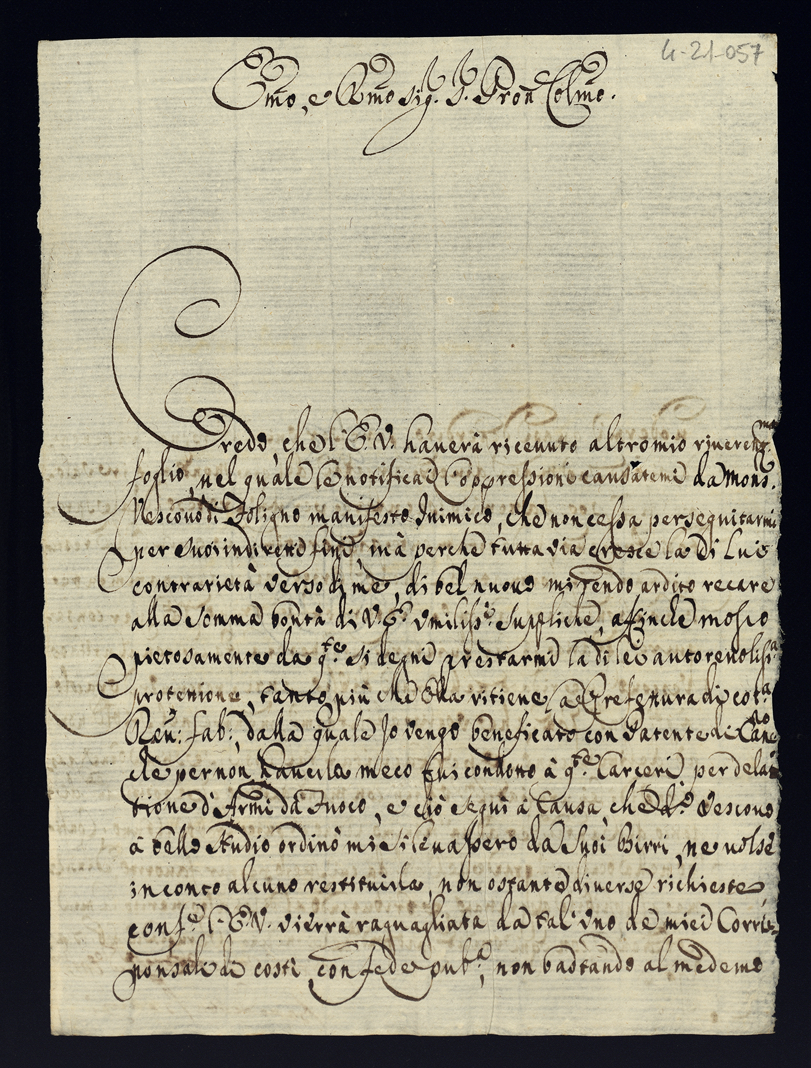 4-21-057
Emo, e Rmo Sig. S. Pron Colmo.
Credo, che l'E. V. haverà riceuuto altro mio riuereng.mo
foglio, nel quale le notificai l'oppressioni causatemi da Mons.
Vescouo di Foligno manifesto Inimico, che non cessa perseguitarmi
per suoi indirend fini, mà perche tuttavia cresce la di lui
contrarietà verso di me, di bel nuouo mi rendo ardito recare
alla somma bontà di V. E. vmiliss.e suppliche, affinche mosso
pietosamente da q.te si degni prestarmi la di lei autoreuoliss.a
protetione, tanto più che Ella ritiene la Prefettura di cot.a
Reu: fab:, dalla quale Io vengo beneficato con Patente de
che per non hauerla meco fui condotto à q.te Carceri per dela
tione d'Armi dà fuoco, e ciò seguì à causa, che d.o Vescouo
à bello studio ordinò mi si leuassero da suoi birri, ne uolse
in conto alcuno restituirla, non ostante diuerse richieste
conf.e l'E. V. verrà raguagliata da tal'vno de miei Corris-
ponsale de costì con fede pub.a, non bastando al medemo